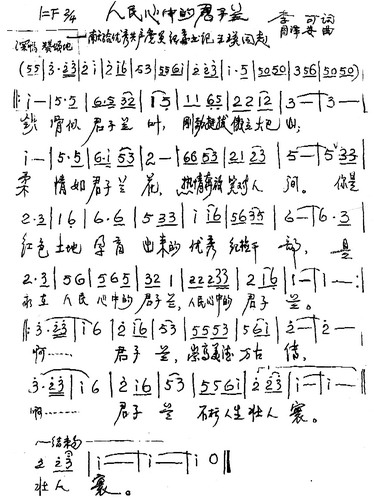 1=F 2/4 人民心中的君子兰 李可词
深情 赞颂地 献给优秀共产党员纪委书记王瑛同志
(55|3·2 23|2 i|2 16|53|5 56 15|2 23|i·5|50 50|356|50 50)|
‖: i—|5·5|6·5 32|1 5|11 65|22 12|3—|3—|
铁 骨似 君子兰 叶, 刚劲 傲立大巴 山;
i—|5·5|6·i 53|2—|66 53|21 23|5—|5 33|
柔 情如君子兰 花, 热情 对人 间。 你是
2·3|16|6·6|5 33|i i6|56 35|6—|6·3|
红色土地 孕育 出来的优秀 纪检干 部, 是
2·3|56|565|32 1|22 2 33|2 16|1—|1—:|
永在 人民 心中的 君子兰, 人民心中的 君子 兰。
‖: 3·2 3|i 6|2 16|53|55 53|56 i|2—|2—|
啊…… 君子 兰, 崇高美德 万古 传,
3·2 3|i 6|2 16|53|55 6 i|2 23|i—|i—:|
啊…… 君子 兰 不朽人生壮人 寰。
结束句
2 23|i—|i—|i 0‖
壮人 寰。